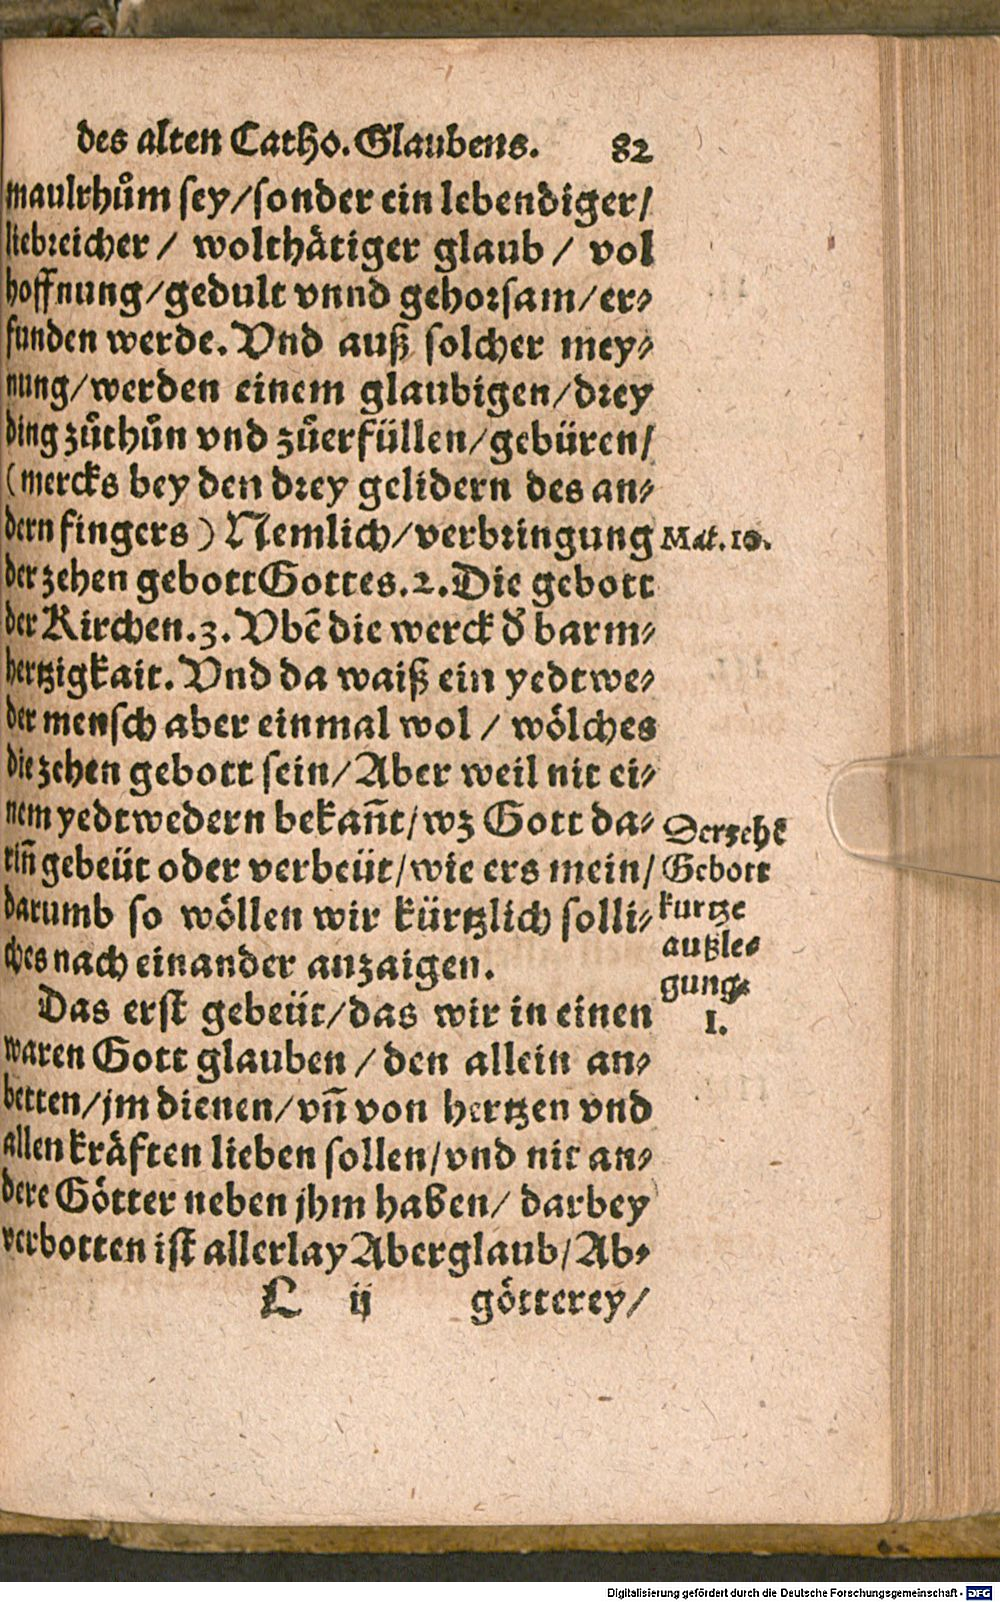 des alten Catho. Glaubens. 82
maulrhům sey/sonder ein lebendiger/
liebreicher / wolthätiger glaub / vol
hoffnung/gedult vnnd gehorsam/er-
funden werde. Vnd auß solcher mey-
nung/werden einem glaubigen/drey
ding zůthůn vnd zůerfüllen/gebüren/
(mercks bey den drey gelidern des an-
dern fingers) Nemlich/verbringung
Mat. 19.
der zehen gebott Gottes. 2. Die gebott
der Kirchen. 3. Vbē die werck d' barm-
hertzigkait. Vnd da waiß ein yedtwe-
der mensch aber einmal wol / wölches
die zehen gebott sein/Aber weil nit ei-
nem yedtwedern bekañt/wz Gott da-
riñ gebeüt oder verbeüt/wie ers mein/
darumb so wöllen wir kürtzlich solli-
ches nach einander anzaigen.
Der zehē
Gebott
kurtze
außle-
gung.
I.
Das erst gebeüt/das wir in einen
waren Gott glauben / den allein an-
betten/jm dienen/vñ von hertzen vnd
allen kräften lieben sollen/vnd nit an-
dere Götter neben jhm haben/ darbey
verbotten ist allerlay Aberglaub/Ab-
L ij götterey/
Digitalisierung gefördert durch die Deutsche Forschungsgemeinschaft - DFG